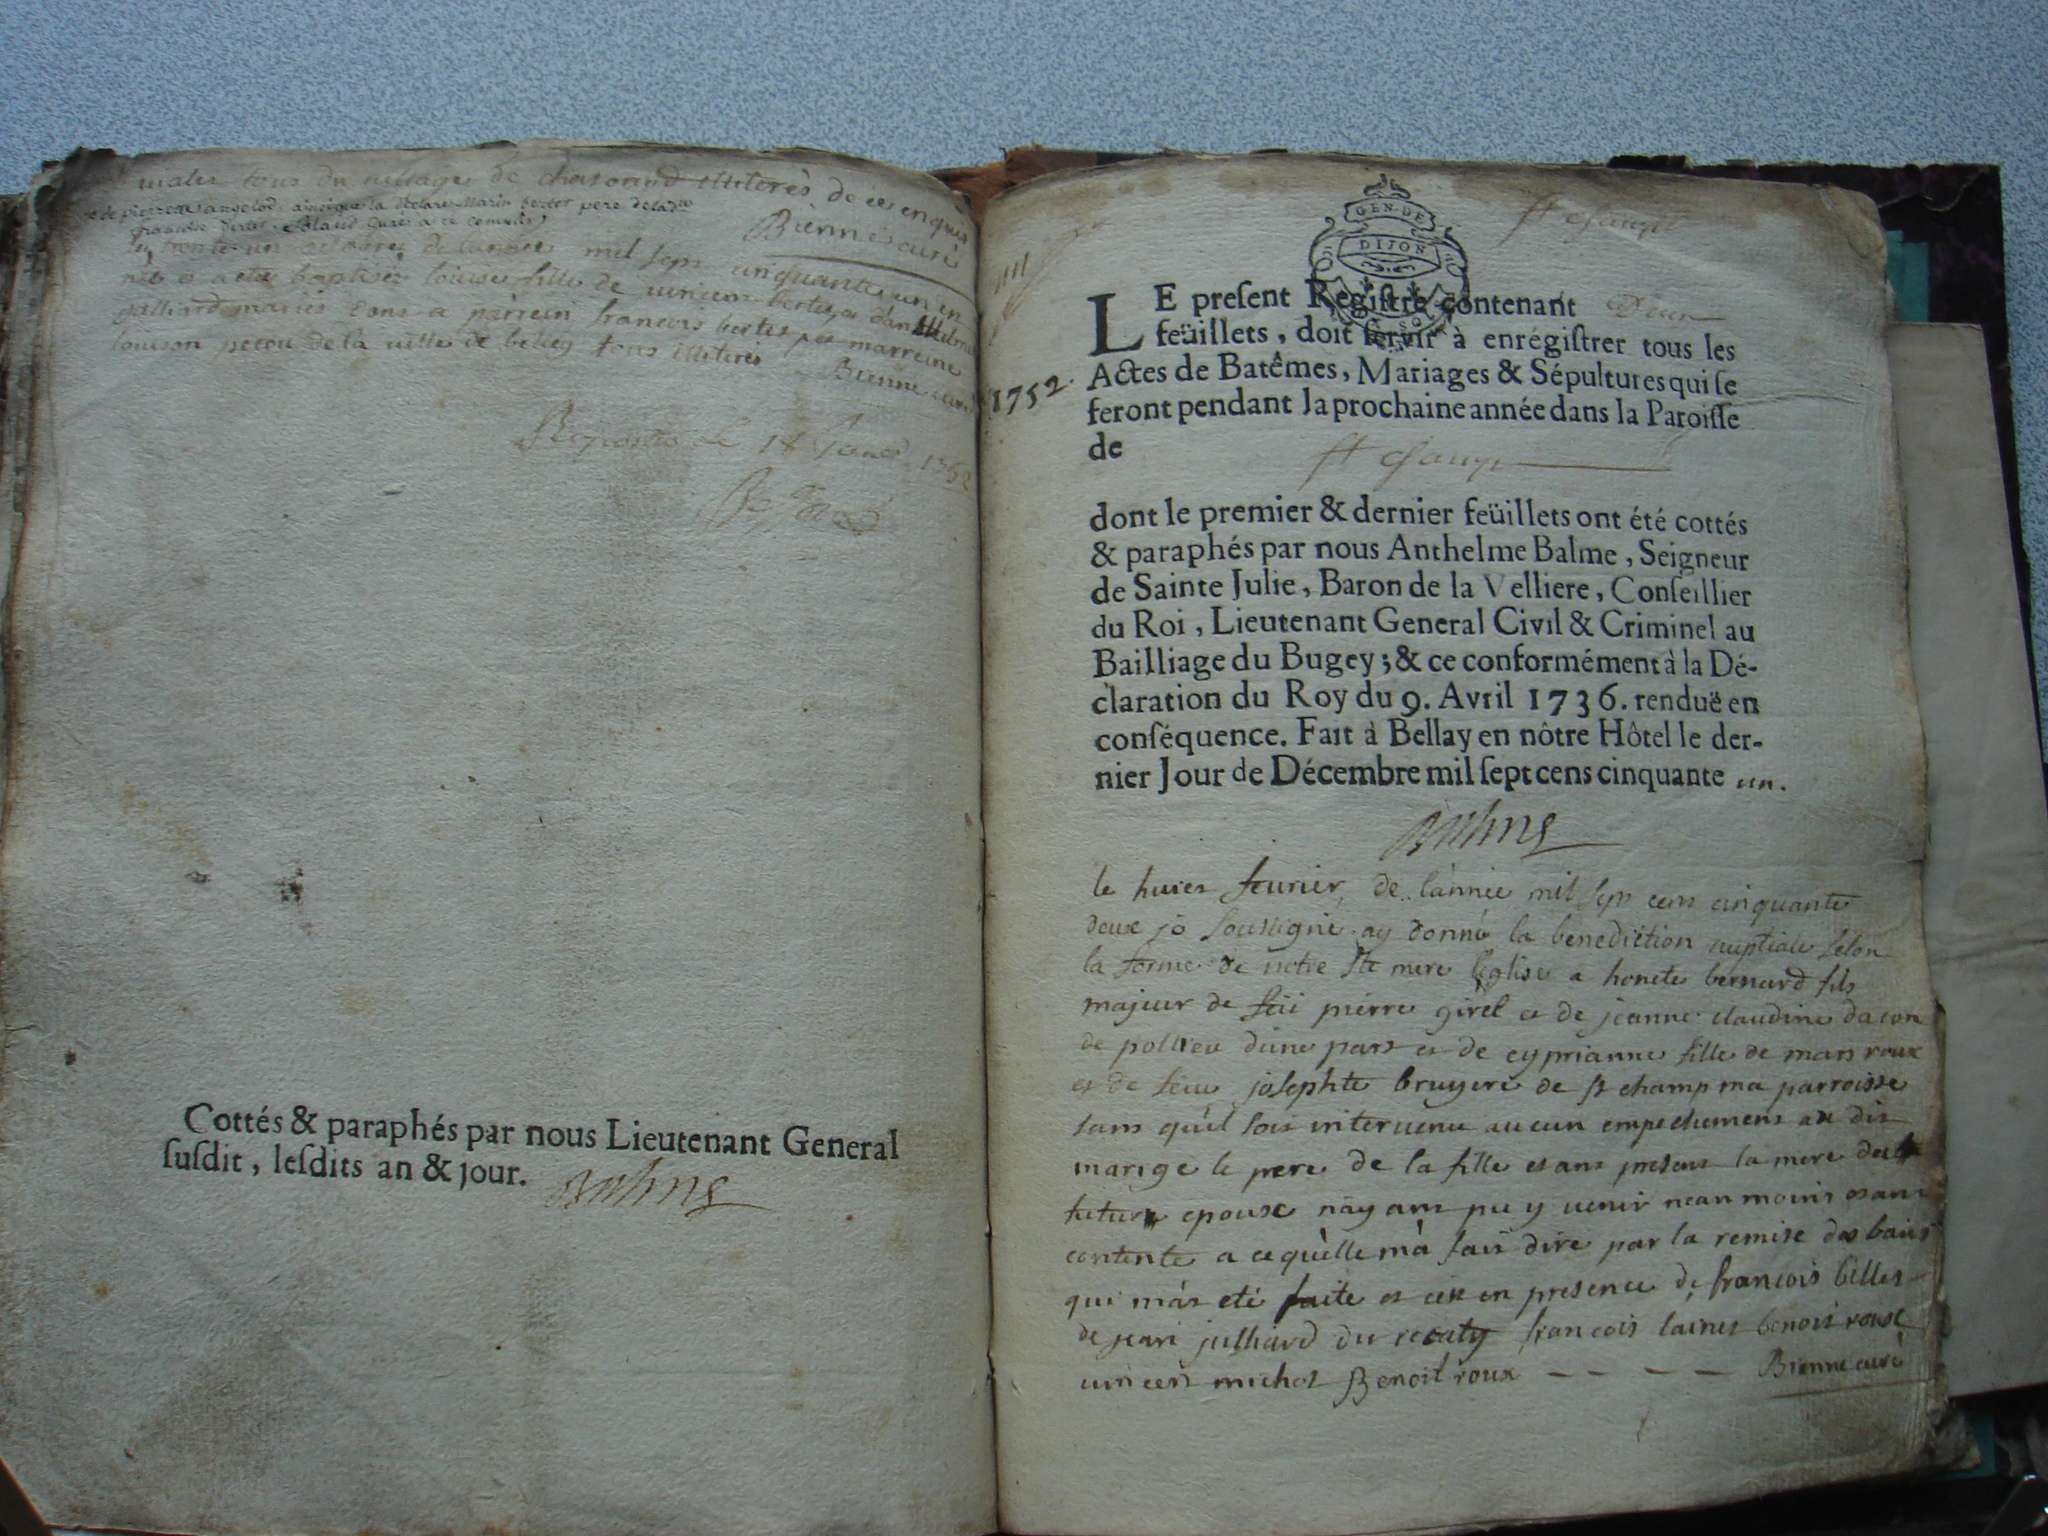 tous du village de chavornod illiterès de ce enquis
Bienne curé
françoise berter
le trente un octobre de lannée mil sept cinquante un en
née et a eté baptisée louise fille de vincent berter et danthelme
julliard mariés e ons a parrein francois berter pr marreine
louison de la ville de belley tous illiteres Bienne curé
le 14 1752
Cottés & paraphés par nous Lieutenant General
susdit, lesdits an & jour.
GEN. DE
DIJON
st champ
LE present Registre contenant Deux
feüillets, doit servir à enrégistrer tous les
1752. Actes de Batêmes, Mariages & Sépultures qui se
feront pendant la prochaine année dans la Paroisse
de st champ
dont le premier & dernier feüillets ont été cottés
& paraphés par nous Anthelme Balme, Seigneur
de Sainte Julie, Baron de la Velliere, Conseillier
du Roi, Lieutenant General Civil & Criminel au
Bailliage du Bugey; & ce conformément à la Dé-
claration du Roy du 9. Avril 1736. renduë en
conséquence. Fait à Bellay en nôtre Hôtel le der-
nier Jour de Décembre mil sept cens cinquante un.
le huiet fevrier de lànnée mil sept cens cinquante
deux jé soussigné ay donné la benediction nuptiale selon
la forme de notre Ste mere léglise a honete bernard fils
majeur de feü pierre girel et de jeanne claudine dacon
de pollieu dùne part et de cyprianne fille de marx roux
et de feue josephte bruyere de st champ ma parroisse
sans qùil soit intervenu aucun empechement au dit
marige le pere de la fille etant present la mere du
futur epoux nàyant pu y venir nean moins etant
contente a ce qùelle mà fait dire par la remise des bans
qui màt eté faite et cé en presence de françois billet
de jean julliard du francois lainet benoit roux
vincent michot Benoit roux - - - - Bienne curé